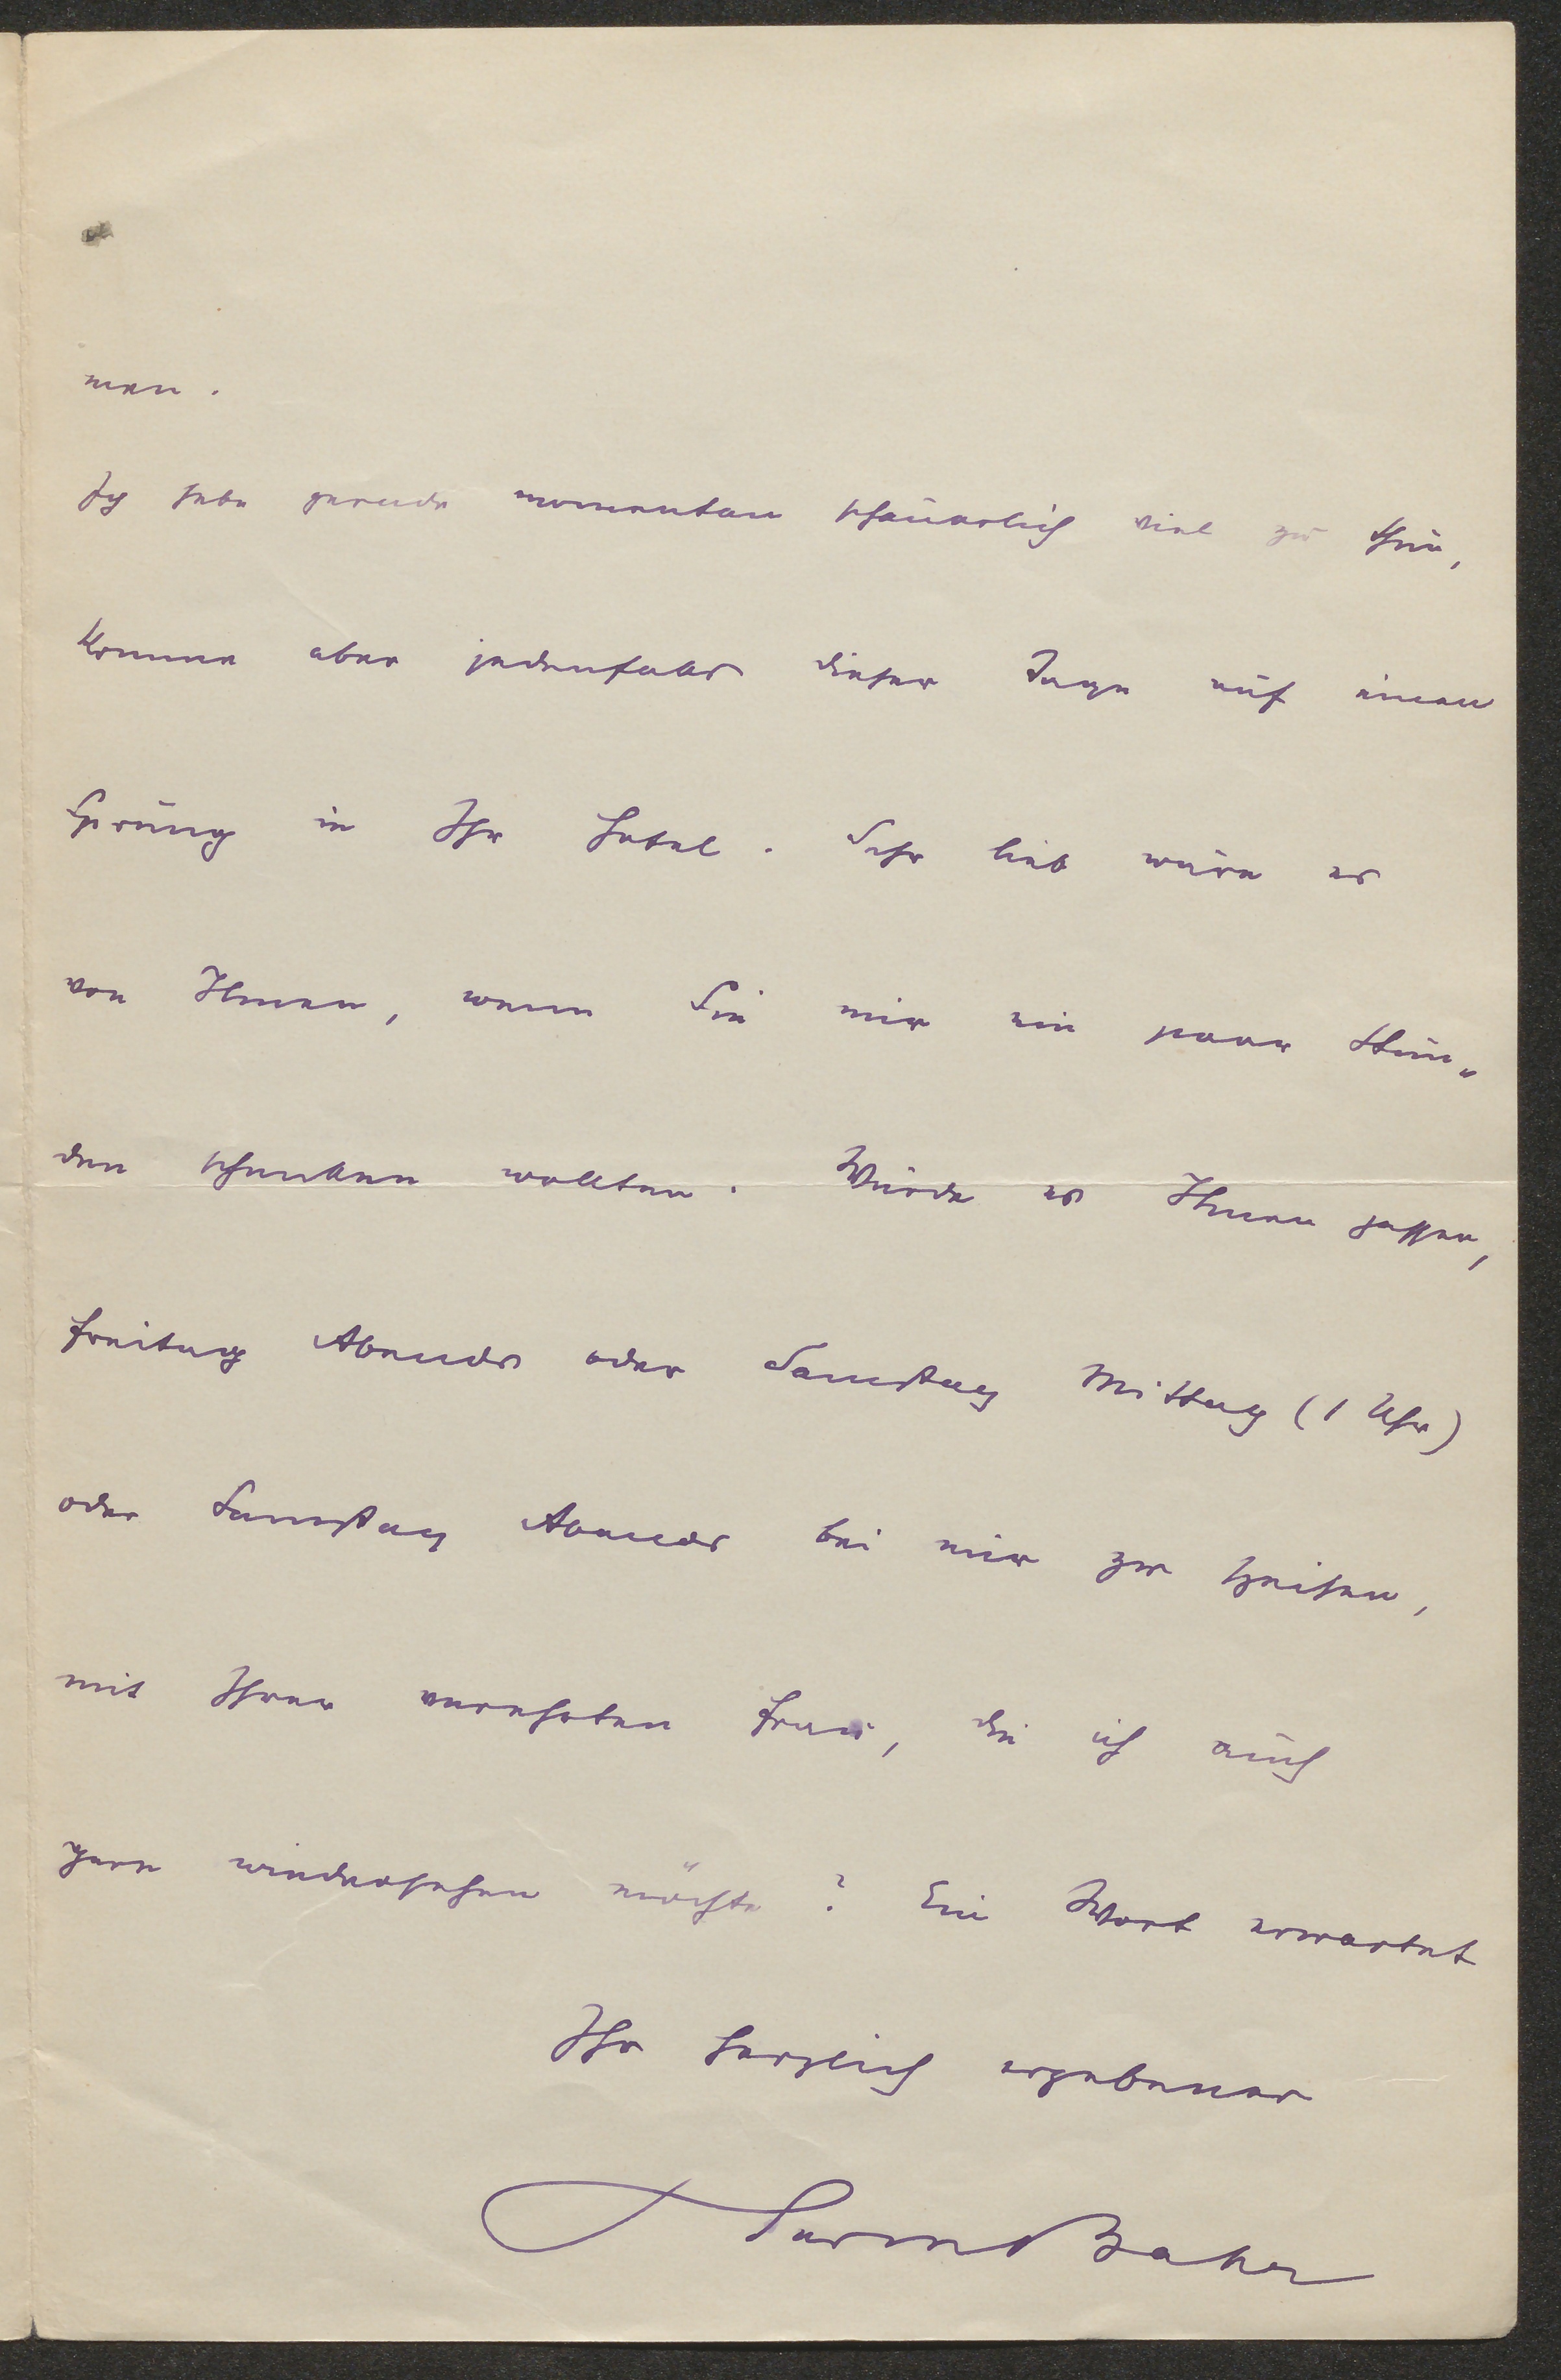 men.
Ich habe gerade momentan schauerlich viel zu thun,
komme aber jedenfalls dieser Tage auf einen
Sprung in Ihr Hotel. Sehr lieb wäre es
von Ihnen, wenn Sie mir ein paar Stun„
den schenken wollten. Würde es Ihnen passen,
Freitag Abends oder Samstag Mittag (1 Uhr)
oder Samstag Abends bei mir zu speisen,
mit Ihrer verehrten Frau, die ich auch
gern wiedersehen möchte? Ein Wort erwartet
Ihr herzlich ergebener
HermBahr